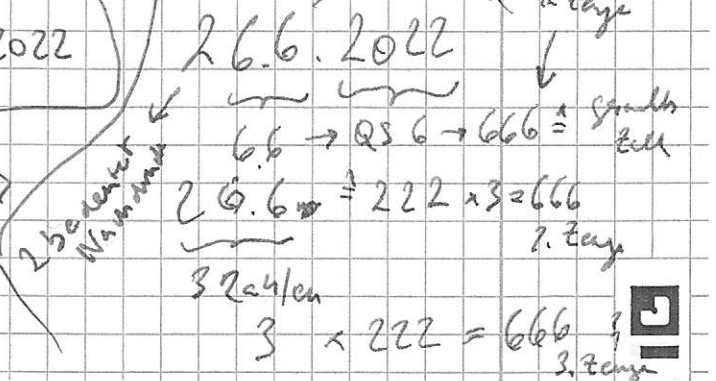 2022
26.6.2022
6.6 → QS 6 → 666 ≙
2 bedeutet
26.6 ≙ 222 × 3 = 666
2. Zeuge
3 Zahlen
3 × 222 = 666
3. Zeuge